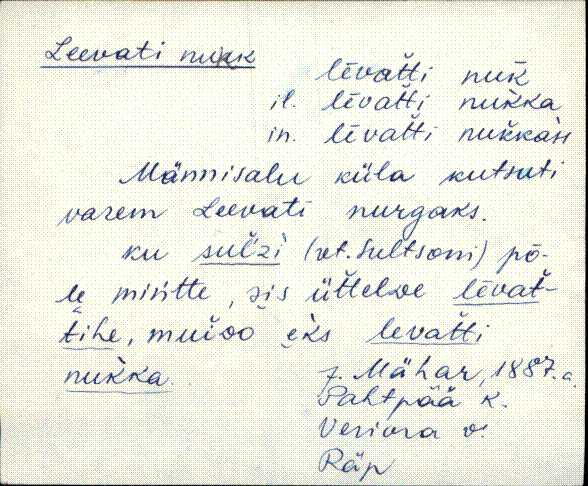 Leevati nukk
lēvat̆ti nuk̆
il. lēvat̆ti nuk̆ka
in. lēvat̆ti nuk̆kaн
Männisalu küla kutsuti
varem Leevati nurgaks.
ku sul̆zi (vt. Sultsoni) pō-
le miñtte, sis üttelde lēvat̆-
tihe, muidō eks levat̆ti
nuk̆ka.
J. Mähar, 1887. a.
Pahtpää k.
Veriora v.
Räp